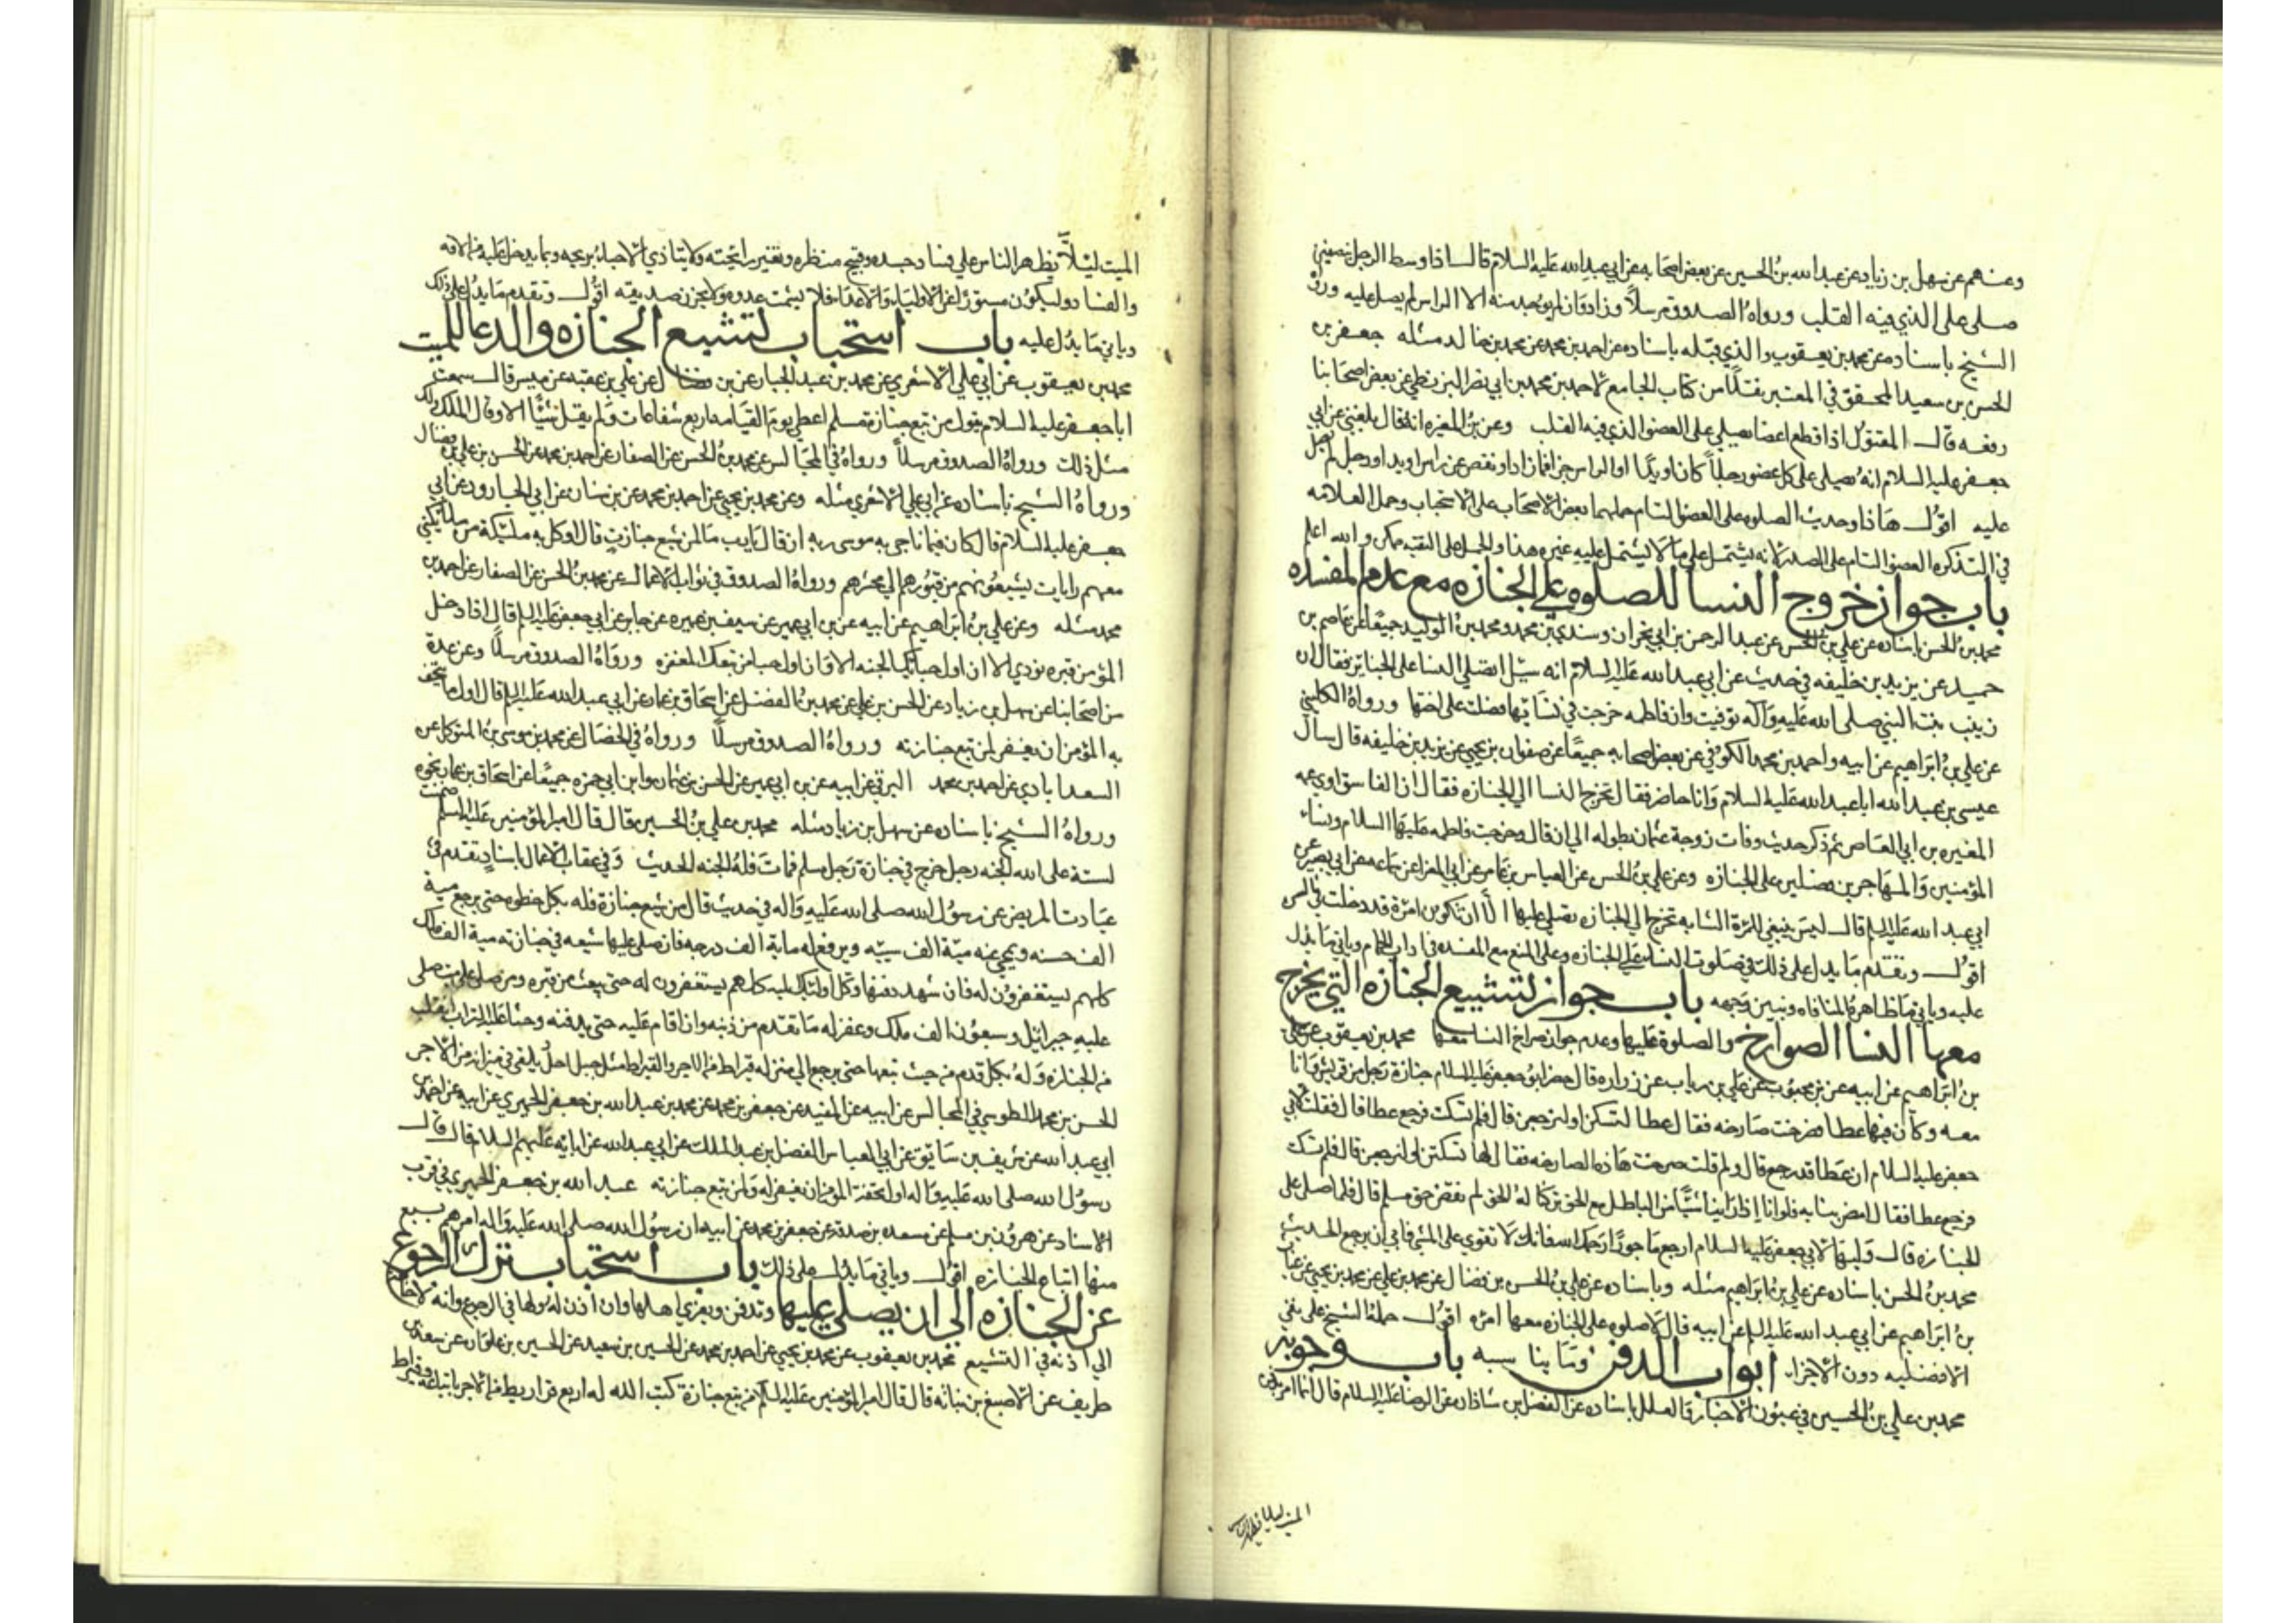 وعنهم عن سهل بن زياد عن عبد الله بن الحسين عن بعض اصحابه عن ابي عبد الله عليه السلام قال اذا وسط الرجل نصفين
صلى على الذي فيه القلب ورواه الصدوق مرسلاً وزاد وان لم يوجد منه الا الراس لم يصل عليه ورواه
الشيخ باسناده عن محمد بن يعقوب والذي قبله باسناده عن احمد بن محمد عن محمد بن خالد مثله جعفر بن
الحسن بن سعيد المحقق في المعتبر نقلًا من كتاب الجامع لاحمد بن محمد بن ابي نصر البزنطي عن بعض اصحابنا
رفعه قال المقتول اذا قطع اعضا يصلي على العضو الذي فيه القلب وعن بن المغيره انه قال بلغني عن ابي
جعفر عليه السلام انه يصلى على كل عضو رجلاً كان او يدًا او الراس جزا فما زاد فاذا نقص عن راس او يد او رجل لم يصل
عليه اقول هاذا وحديث الصلوه على العضو التام حملهما بعض الاصحاب على الاستحباب وحمل العلامه
في التذكره العضو التام على الصدر لانه يشتمل على ما لا يشتمل عليه غيره هذا والحمل على التقيه ممكن والله اعلم
باب جواز خروج النسا للصلوه على الجنازه مع عدم المفسده
محمد بن الحسن باسناده عن علي بن الحسن عن عبد الرحمن بن ابي نجران وسندي بن محمد ومحمد بن الوليد جميعًا عن عاصم بن
حميد عن يزيد بن خليفه في حديث عن ابي عبد الله عليه السلام انه سئل اتصلي النسا على الجنايز فقال ان
زينب بنت النبي صلى الله عليه وآله توفيت وان فاطمه خرجت في نسائها فصلت على اختها ورواه الكليني
عن علي بن ابراهيم عن ابيه واحمد بن محمد الكوفي عن بعض اصحابه جميعًا عن صفوان بن يحيى عن يزيد بن خليفه قال سأل
عيسى بن عبد الله ابا عبد الله عليه السلام وانا حاضر فقال تخرج النسا الي الجنازه فقال ان الفاسق اوى عمه
المغيره بن ابي العاص ثم ذكر حديث وفات زوجة عثمان بطوله الي ان قال وخرجت فاطمه عليها السلام ونساء
المؤمنين والمهاجرين فصلين على الجنازه وعن علي بن الحسن عن العباس بن عامر عن ابي المغرا عن سماعه عن ابي بصير عن
ابي عبد الله عليه السلم قال ليس ينبغي للمرة الشابه تخرج الي الجنازه تصلي عليها الا ان تكون امرة قد دخلت في السن
اقول وتقدم ما يدل على ذلك في صلوت النسا على الجنازه وعلى المنع مع المفسده في اداب الحمام وياتي ما يدل
عليه وياتي ما ظاهره المنافاه ونبين وجهه باب جواز تشييع الجنازه التي يخرج
معها النسا الصوارخ والصلوة عليها وعدم جواز صراخ النسا معها محمد بن يعقوب عن علي
بن ابراهيم عن ابيه عن بن محبوب عن علي بن رياب عن زراره قال حضر ابو جعفر عليه السلام جنازة رجل من قريش وانا
معه وكان فيها عطا فصرخت صارخه فقال عطا لتسكتن او لنرجعن قال فلم تسكت فرجع عطا قال فقلت لابي
جعفر عليه السلام ان عطا قد رجع قال ولم قلت صرخت هاذه الصارخه فقال لها لتسكتن او لنرجعن قال فلم تسكت
فرجع عطا فقال امض بنا به فلو انا اذا راينا شيًا من الباطل مع الحق تركنا له الحق لم نقض حق مسلم قال فلما صلى على
الجنازه قال وليها لابي جعفر عليه السلام ارجع ماجورًا رحمك الله فانك لا تقوي على المشي فابي ان يرجع الحديث
محمد بن الحسن باسناده عن علي بن ابراهيم مثله وباسناده عن علي بن الحسن بن فضال عن محمد بن علي عن محمد بن يحيى عن غياث
بن ابراهيم عن ابي عبد الله عليه السلم عن ابيه قال لا صلوه على جنازه معها امره اقول حمله الشيخ على نفي
الافضليه دون الاجزا ابواب الدفن وما يناسبه باب وجوبه
محمد بن علي بن الحسين في عيون الاخبار والعلل باسناده عن الفضل بن شاذان عن الرضا عليه السلام قال انما امر بدفن
الميت ليلا يظهر الناس
الميت ليلاّ يظهر الناس علي فساد جسده وقبح منظره وتغير رايحته ولا يتاذي الاحياء بريحه وبما يدخل عليه من الافه
والفساد وليكون مستورًا عن الاولياء والاعداء فلا يشمت عدوه ولا يحزن صديقه اقول وتقدم ما يدل على ذلك
وياتي ما يدل عليه باب استحباب تشييع الجنازه والدعا للميت
محمد بن يعقوب عن ابي علي الاشعري عن محمد بن عبد الجبار عن بن فضال عن علي بن عقبه عن ميسر قال سمعت
ابا جعفر عليه السلام يقول من تبع جنازة مسلم اعطي يوم القيامه اربع شفاعات ولم يقل شيًا الا وقال الملك ولك
مثل ذلك ورواه الصدوق مرسلاً ورواه في المجالس عن محمد بن الحسن عن الصفار عن احمد بن محمد عن الحسن بن علي بن فضال
ورواه الشيخ باسناده عن ابي علي الاشعري مثله وعن محمد بن يحيى عن احمد بن محمد عن بن سنان عن ابي الجارود عن ابي
جعفر عليه السلام قال كان فيما ناجى به موسى ربه ان قال يارب ما لمن شيع جنازت قال اوكل به مليكة من مليكتي
معهم رايات يشيعونهم من قبورهم الي محشرهم ورواه الصدوق في ثواب الاعمال عن محمد بن الحسن عن الصفار عن احمد بن
محمد مثله وعن علي بن ابراهيم عن ابيه عن بن ابي عمير عن سيف بن عميره عن جابر عن ابي جعفر عليه السلم قال اذا دخل
المؤمن قبره نودي الا ان اول حبائك الجنه الا وان اول حبا من تبعك المغفره ورواه الصدوق مرسلًا وعن عدة
من اصحابنا عن سهل بن زياد عن الحسن بن علي عن محمد بن الفضل عن اسحاق بن عمار عن ابي عبد الله عليه السلم قال اول ما يتحف
به المؤمن ان يغفر لمن تبع جنازته ورواه الصدوق مرسلًا ورواه في الخصال عن محمد بن موسى بن المتوكل عن
السعدابادي عن احمد بن محمد البرقي عن ابيه عن بن ابي عمير عن الحسن بن عثمان وابن ابي حمزه جميعًا عن اسحاق بن عمار نحوه
ورواه الشيخ باسناده عن سهل بن زياد مثله محمد بن علي بن الحسين قال قال امير المؤمنين عليه السلم ضمنت
لستة على الله الجنه رجل خرج في جنازة رجل مسلم فمات فله الجنه الحديث وفي عقاب الاعمال باسناد تقدم في
عيادت المريض عن رسول الله صلى الله عليه واله في حديث قال من شيع جنازة فله بكل خطوه حتى يرجع مية
الف حسنه ويمحي عنه مية الف سييه ويرفع له ماية الف درجه فان صلى عليها شيعه في جنازته مية الف ملك
كلهم يستغفرون له فان شهد دفنها وكل اولئك به كلهم يستغفرون له حتى يبعث من قبره ومن صلى على ميت صلى
عليه جبرائيل وسبعون الف ملك وغفر له ما تقدم من ذنبه وان اقام عليه حتى يدفنه وحثا عليه التراب انقلب
من الجنازه وله بكل قدم من حيث تبعها حتى يرجع الي منزله قيراط من الاجر والقيراط مثل جبل احد يلقى في ميزانه من الاجر
الحسن بن محمد الطوسي في المجالس عن ابيه عن المفيد عن جعفر بن محمد عن محمد بن عبد الله بن جعفر الحميري عن ابيه عن احمد بن
ابي عبد الله عن شريف بن سابق عن ابي العباس الفضل بن عبد الملك عن ابي عبد الله عن ابايه عليهم السلام قال قال
رسول الله صلى الله عليه واله اول تحفة المؤمن ان يغفر له ولمن تبع جنازته عبد الله بن جعفر الحميري في قرب
الاسناد عن هرون بن مسلم عن مسعده بن صدقه عن جعفر بن محمد عن ابيه ان رسول الله صلى الله عليه واله امرهم بسبع
منها اتباع الجنازه اقول وياتي ما يدل على ذلك باب استحباب ترك الرجوع
عن الجنازه الى ان يصلي عليها وتدفن ويعزي اهلها وان اذن له وليها في الرجوع وانه لا حاجة
الي اذنه في التشييع محمد بن يعقوب عن محمد بن يحيى عن احمد بن محمد عن الحسين بن سعيد عن الحسين بن علوان عن سعد بن
طريف عن الاصبغ بن نباته قال قال امير المؤمنين عليه السلام من تبع جنازة كتب الله له اربع قراريط من الاجر باتباعه وقيراط